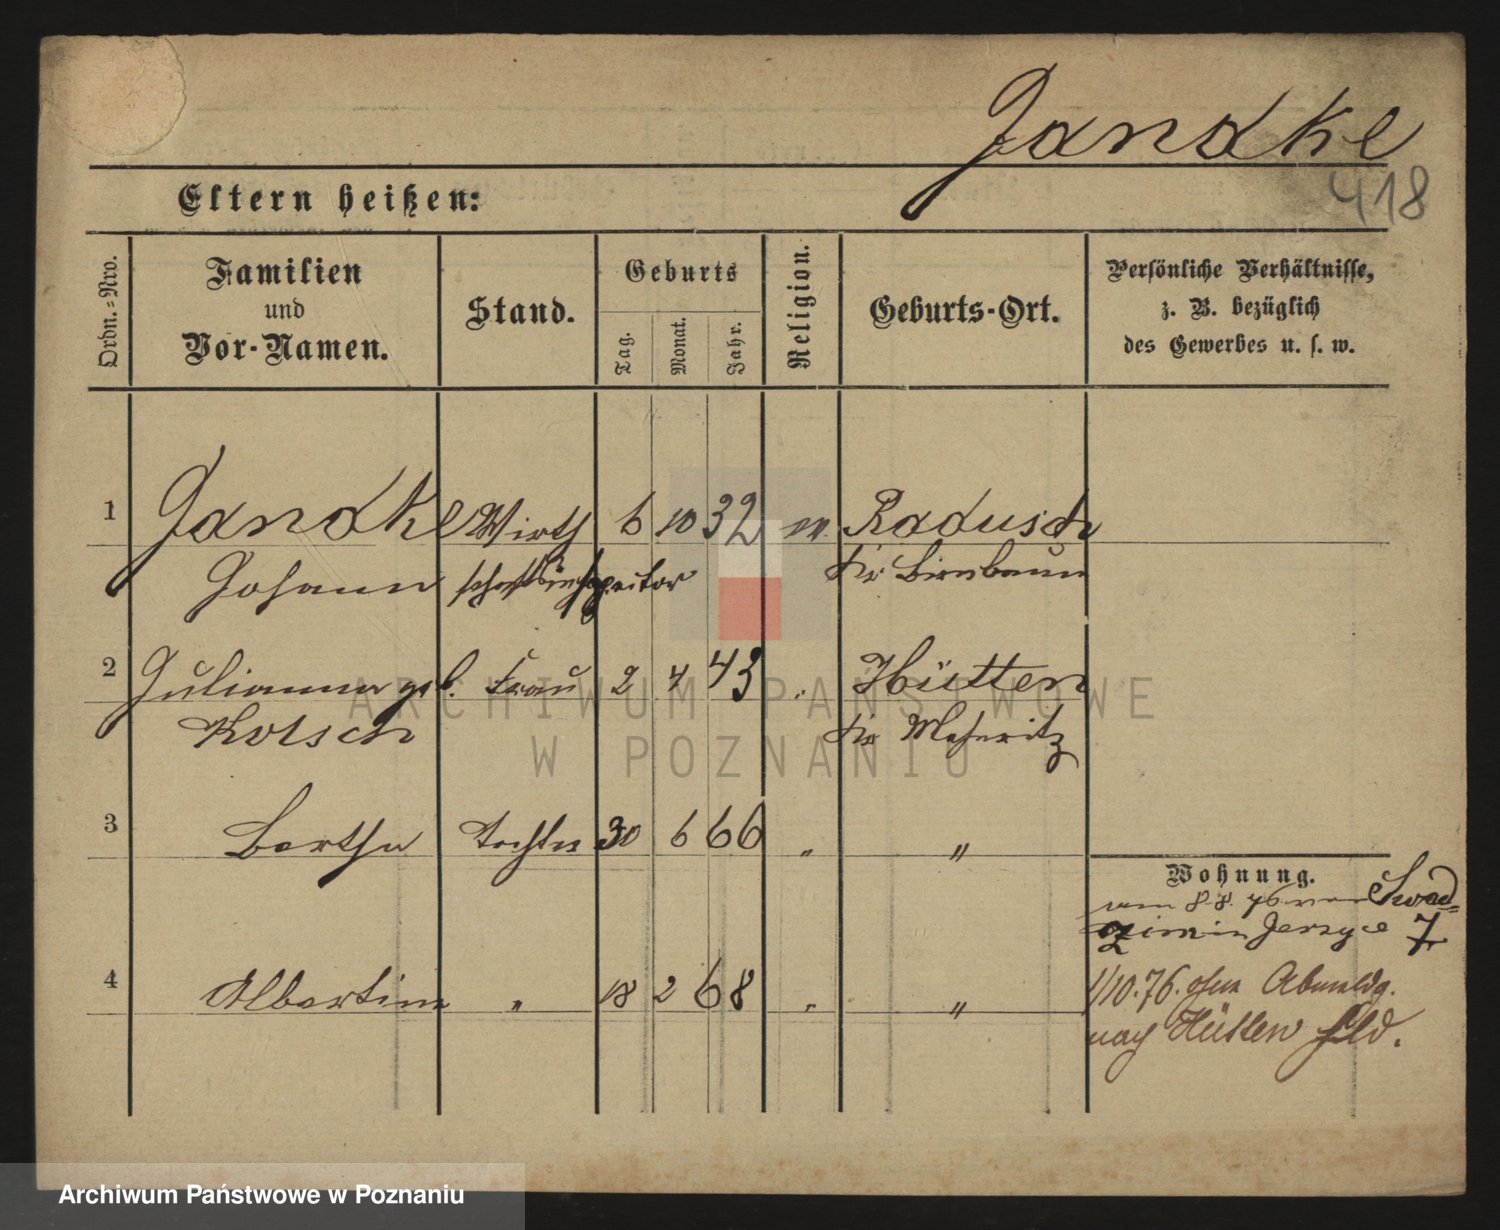 Jandke
418
Eltern heißen:
Ordn.-Nro.
Familien und Vor-Namen.
Stand.
Geburts
Tag.
Monat.
Jahr.
Religion.
Geburts-Ort.
Persönliche Verhältnisse,
z. B. bezüglich
des Gewerbes u. s. w.
1 Jandke Wirth 6 10 32 Radusch
Johann schaftsinspector Kr Birnbaum
2 Julianna geb. Frau 2 4 43 " Hütten
Kotsch Kr Meseritz
3 Bertha Tochter 30 6 66 " "
Wohnung.
am 8 8. 76 von Swad=
zim in Jerzyce 7
4 Albertine " 18 2 68 " "
1/10.76. ohne Abmeldg.
nach Hütten
ARCHIWUM PAŃSTWOWE
W POZNANIU
Archiwum Państwowe w Poznaniu